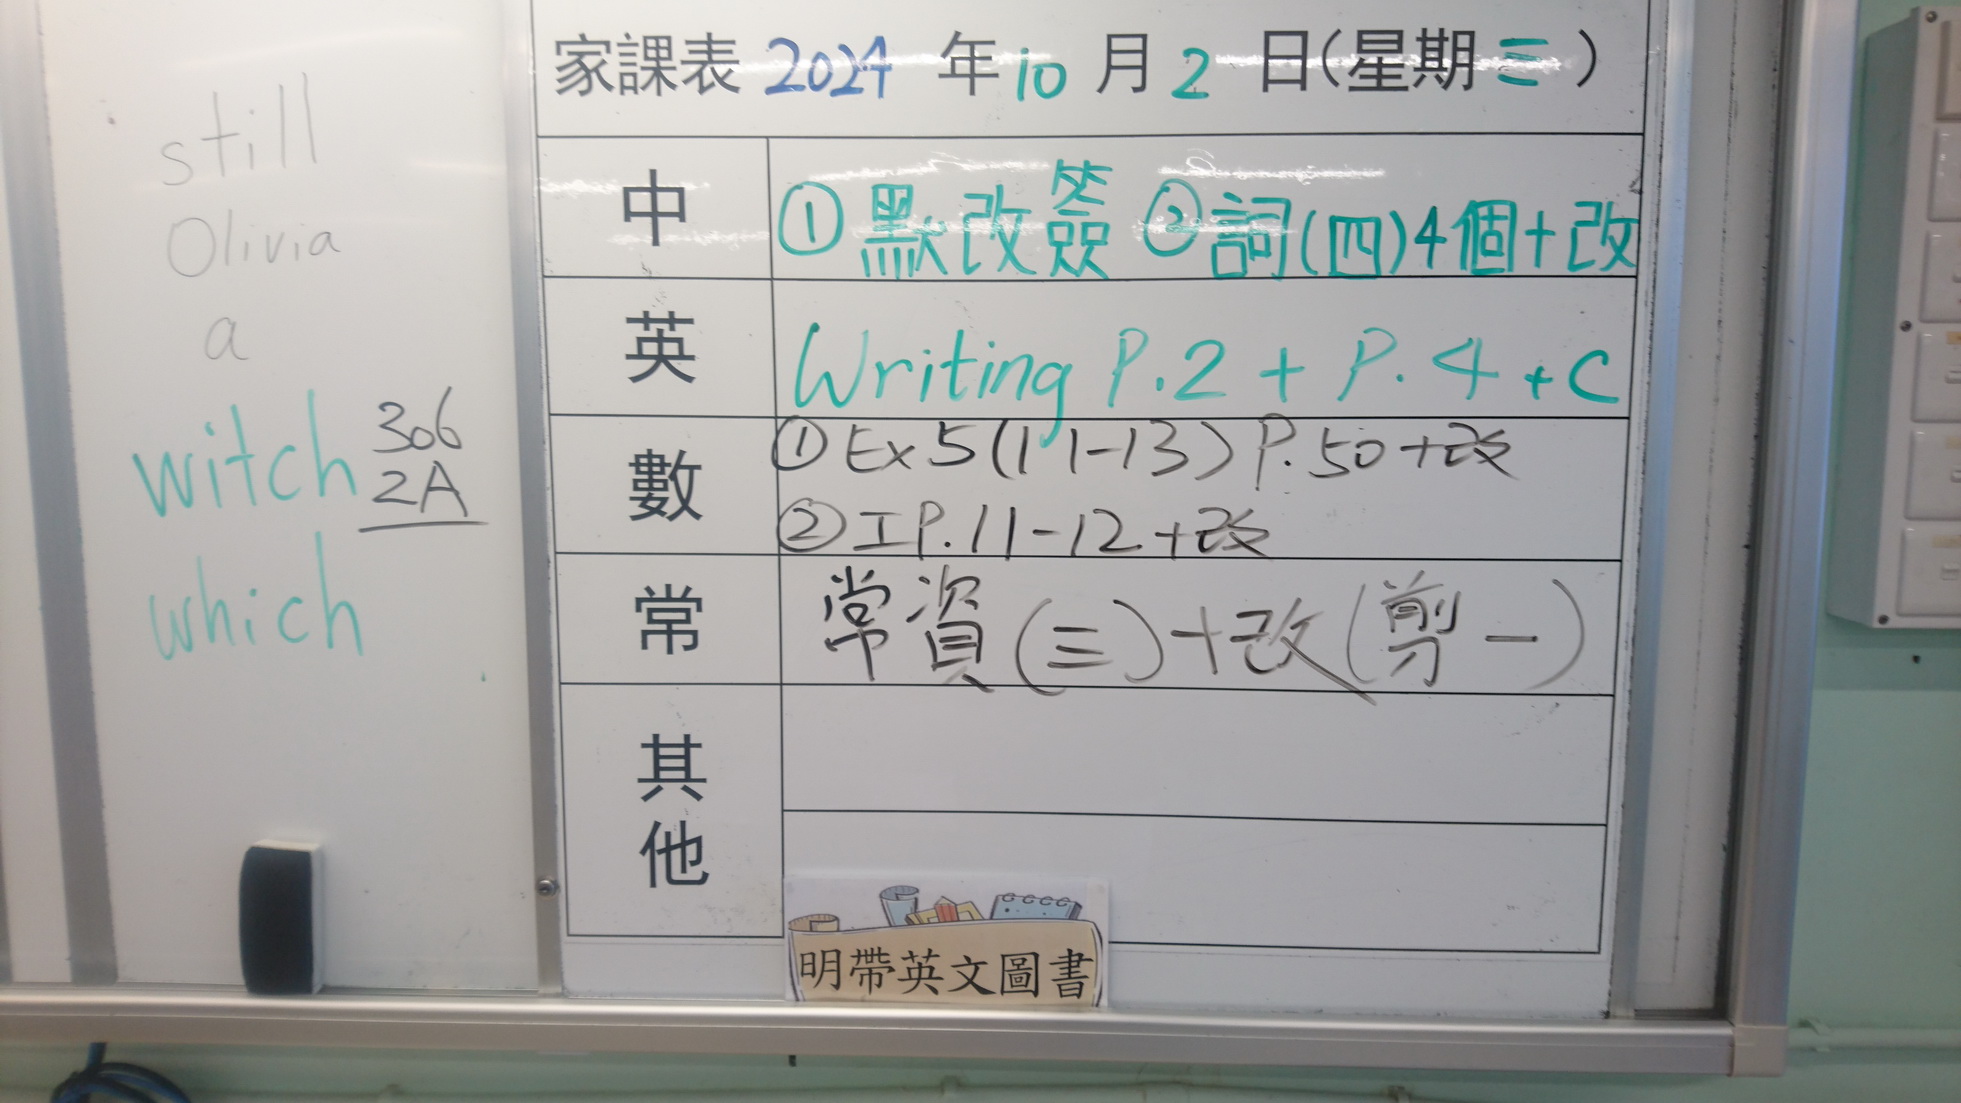 still
Olivia
a
witch 306
2A
which
家課表 2024 年 10 月 2 日(星期三)
中 ①默改簽 ②詞(四)4個+改
英 Writing P.2 + P.4 + C
數 ① Ex 5 (11-13) P.50+改
② IP.11-12+改
常 常資(三)+改(剪一)
其他
明帶英文圖書